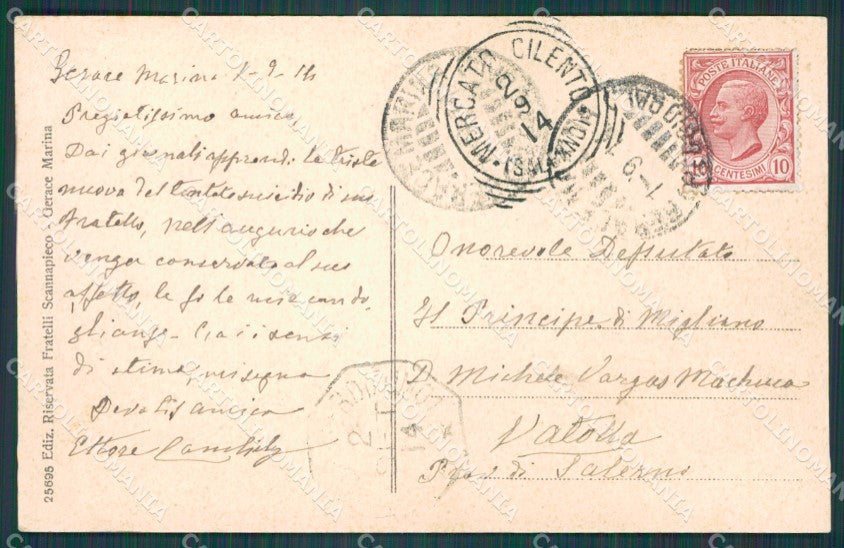 Gerace Marina 1-9-14
Pregiatissimo amico
Dai giornali apprendo la triste
nuova del tentato suicidio di suo
fratello, nell'augurio che
venga conservato al suo
affetto, le fo le mie condo
glianze. Coi sensi
di stima, mi segno
Devotis amico
Ettore
25695 Ediz. Riservata Fratelli Scannapieco - Gerace Marina
MERCATO CILENTO
(SALERNO)
2 9 14
POSTE ITALIANE
CENTESIMI 10
1-9
Onorevole Deputato
Il Principe di Migliano
D. Michele Vargas Machuca
Vatolla
di Salerno
2
14
CARTOLINOMANIA